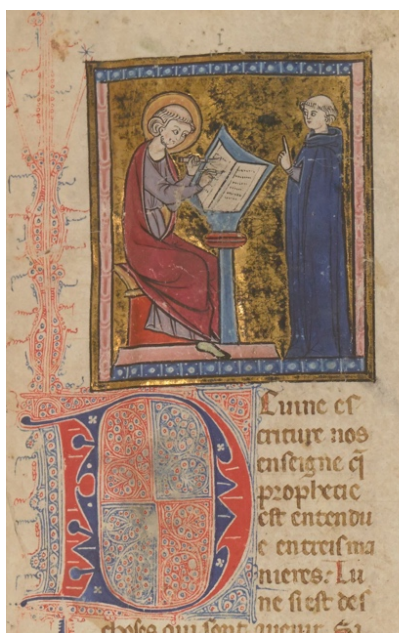 Diuine es
criture nos
enseigne q̃
prophecie
est entendu
e en treis ma
nieres. Lu
ne si est des
choses qui sont